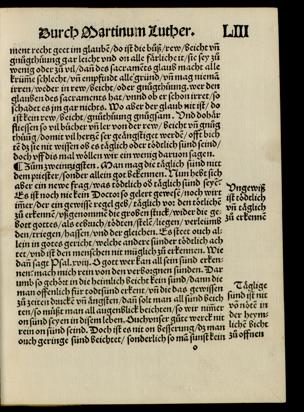 Durch Martinum Luther. LIII
ment recht geet im glaubē/ do ist die bůß/ rew/ beicht vñ
gnůgthůung gar leicht vnd on alle färlicheit/ sie sey zu
wenig oder zu vil/ dañ des sacramēts glaub macht alle
krümē schlecht/ vñ empfundt alle gründ/ vñ mag niemā
irren/ weder in rew/ beicht/ oder gnůgthůung/ wer den
glauben des sacraments hat/ vnnd ob er schon irret/ so
schadet es im gar nichts. Wo aber der glaub nit ist/ do
ist kein rew/ beicht/ gnůthůung gnůgsam. Vnd dohår
fliessen so vil bücher vñ ler von der rew/ beicht vñ gnůg
thůung/ domit vil hertzē ser geångstiget werdē/ offt beich
tē ds sie nit wissen ob es täglich oder tödtlich sünd seind/
doch vff dis mal wöllen wir ein wenig daruon sagen.
¶ Zům zwentzigsten. Man mag die täglich sünd nit
dem priester/ sonder allein got bekennen. Nun hebt sich
aber ein newe frag/ was tödtlich oď täglich sünd seyē?
Es ist noch nie kein Doctor so gelert gewest/ noch würt
imer/ der ein gewisse regel geb/ täglich vor den tödtlichē
zů erkennē/ vßgenommē die groben stück/ wider die ge-
bott gottes/ als eebruch/ tödten/ stelē/ liegen/ verleumb
den/ triegen/ hassen/ vnd der gleichen. Es steet ouch al-
lein in gottes gericht/ welche andere sünder tödtlich ach
tet/ vnd ist den menschen nit müglich zů erkennen. Wie
dañ sagt Psal.xviij. O gott wer kan all sein sünd erken-
nen: mach mich rein von den verborgnen sünden. Dar
umb so gehört in die heimlich beicht kein sünd/ dann die
man offenlich für todtsünd erkent/ vñ die das gewissen
zů zeiten druckē vñ ångsten/ dañ solt man all sünd beich
ten/ so müßt man all augenblick beichten/ so wir nimer
on sünd seyen in disem leben. Ouch vnser gůte werck nit
rein on sünd seind. Doch ist es nit on besserung/ ds man
ouch geringe sünd beichtet/ sonderlich so mā sunst kein
o
Vngewiß
ist tödtlich
vñ täglich
zů erkennē
Tägliche
sünd ist nit
vō nötē in
der heym-
lichē bicht
zů offnen